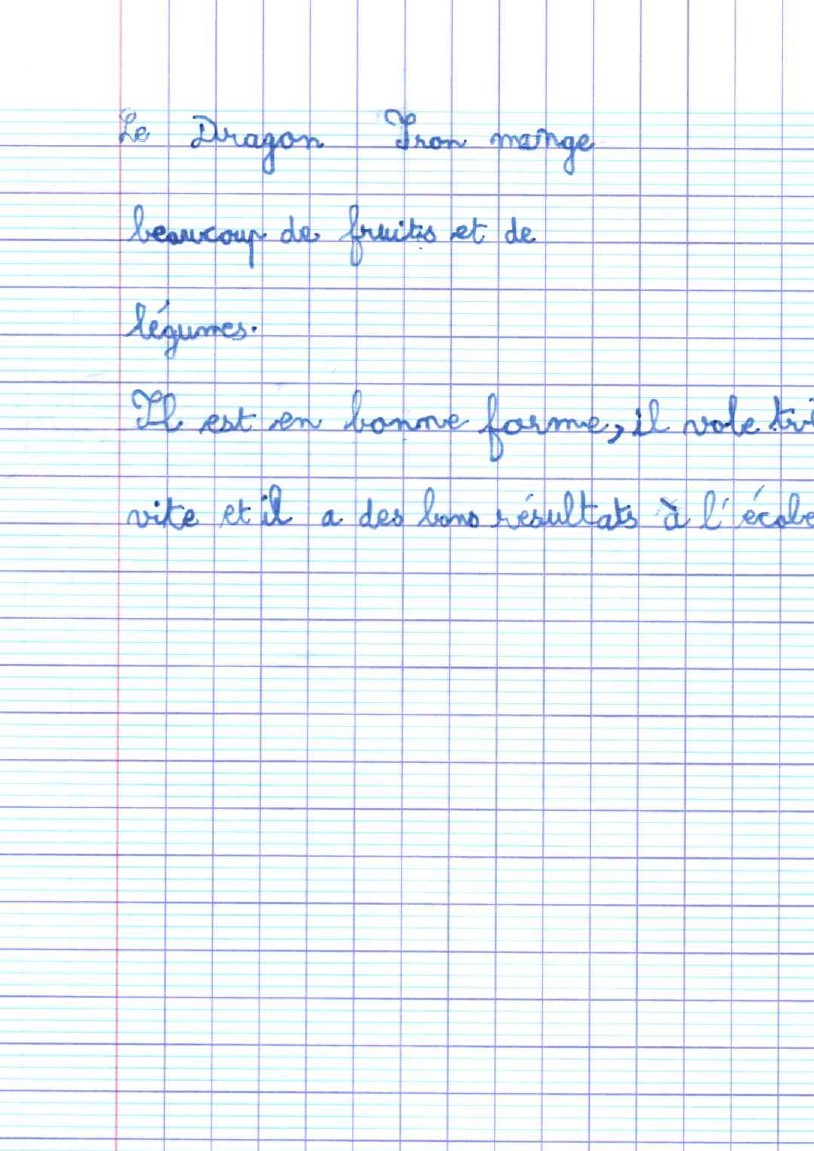 Le Dragon Iron mange
beaucoup de fruits et de
légumes.
Il est en bonne forme, il vole trè
vite et il a des bons résultats à l'école